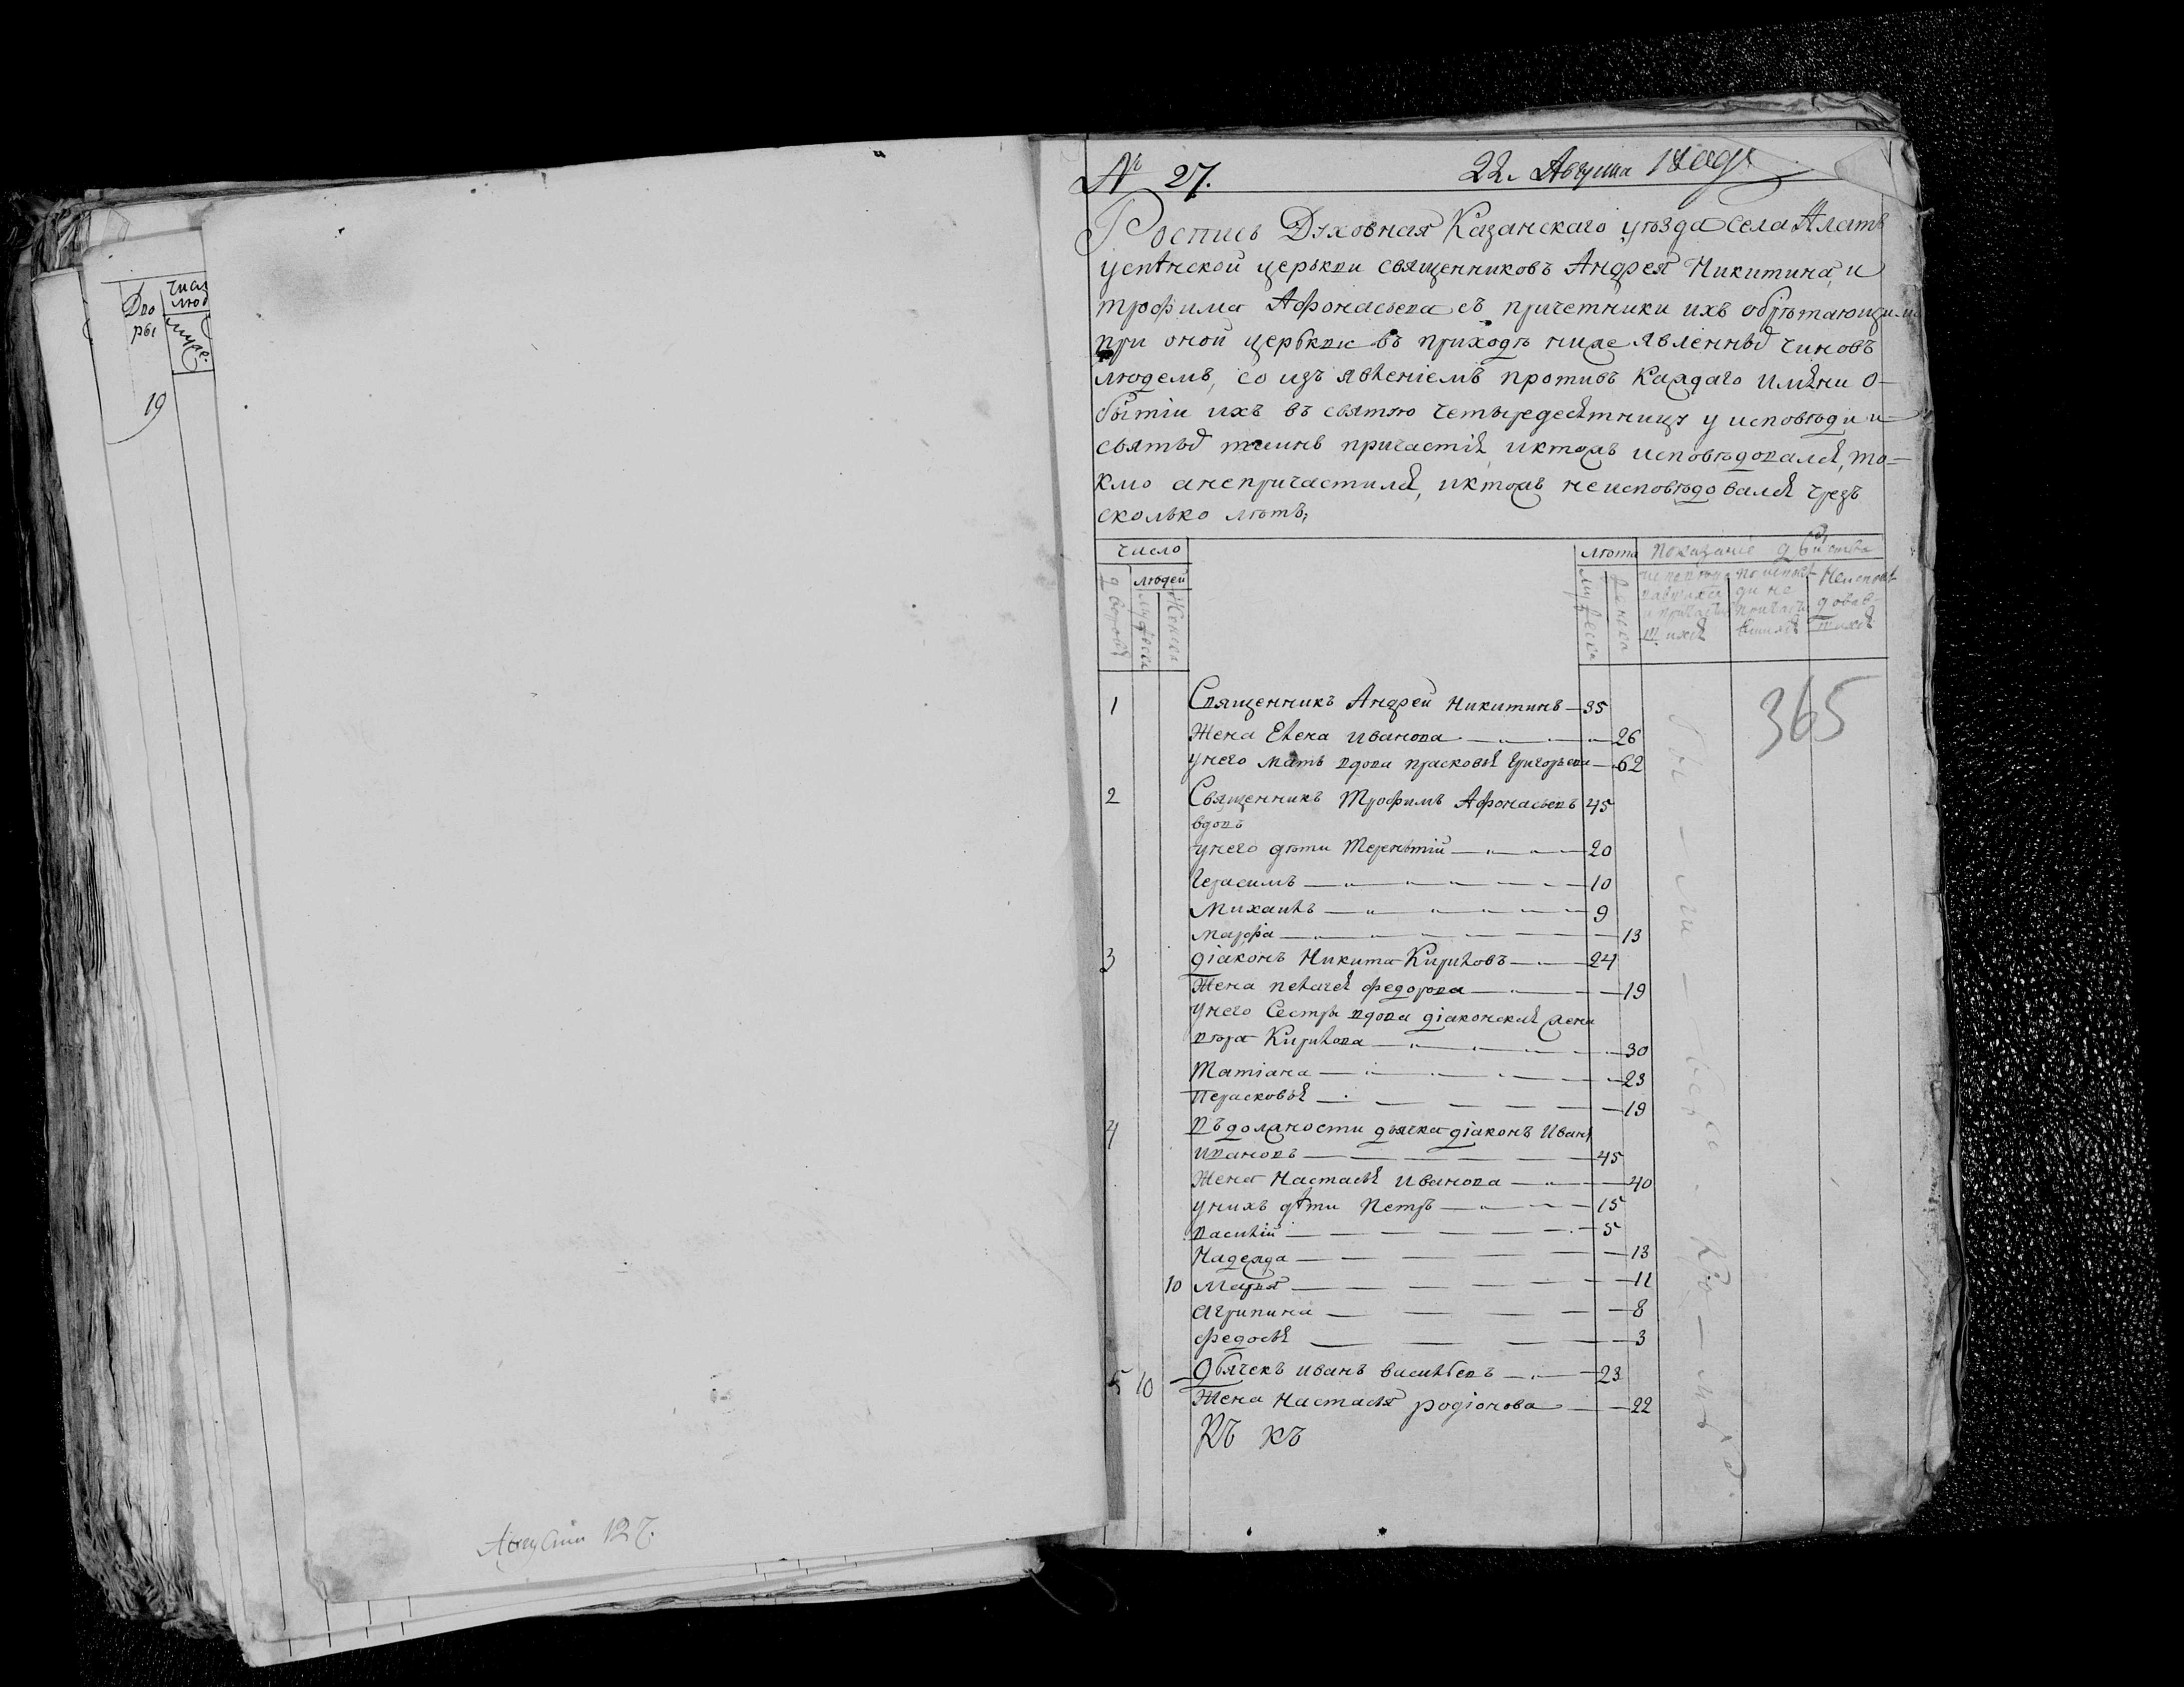 Дво
ры
Числ
люд
муже.
19
Августа 12
№ 27.
22. Августа
Роспись Духовная Казанскаго уѣзда села Алатъ
успѣнской церькви священниковъ Андрея Никитина, и
трофима Афонасьева съ причетники ихъ обрѣтающими
при оной церькви въ приходѣ ниже явленныхъ чиновъ
людемъ, со изъявленіемъ противъ каждаго имѣни о-
бытіи ихъ въ святую четыредесѧтницу у исповѣди и
святыхъ таинъ причастїѧ, и ктожъ исповѣдовалсѧ, то-
кмо а непричастилсѧ, и ктожъ неисповѣдовалсѧ чрезъ
сколько лѣтъ;
число
людей
дворовъ
мужеска
женска
лѣта
мужеска
женска
показаніе дѣйства
исповѣдо
вавшихсѧ
и причасти
шихсѧ
по исповѣ
ди не
причасти
вшихсѧ
Неисповѣ
довав-
шихсѧ
365
1 Священникъ Андрей Никитинъ — 35
Жена Елена Иванова — 26
у него мать вдова прасковьѧ Григорьева — 62
2 Священникъ Трофимъ Афонасьевъ 45
вдовъ
у него дѣти Терентїй — 20
Герасимъ — 10
Михаилъ — 9
Марфа — 13
3 діаконъ Никита Кириловъ — 24
Жена пелагеѧ федорова — 19
У него Сестры вдова діаконскаѧ жена
вѣра Кирилова — 30
Татіана — 23
Прасковьѧ — 19
4 въ должности дьячка діаконъ Иванъ
ивановъ — 45
Жена Настасьѧ Иванова — 40
у нихъ дѣти Петръ — 15
василїй — 5
Надежда — 13
10 Марья — 11
агрипина — 8
федосьѧ — 3
5 10 Дьячекъ иванъ васильевъ — 23
Жена Настасья родіонова — 22